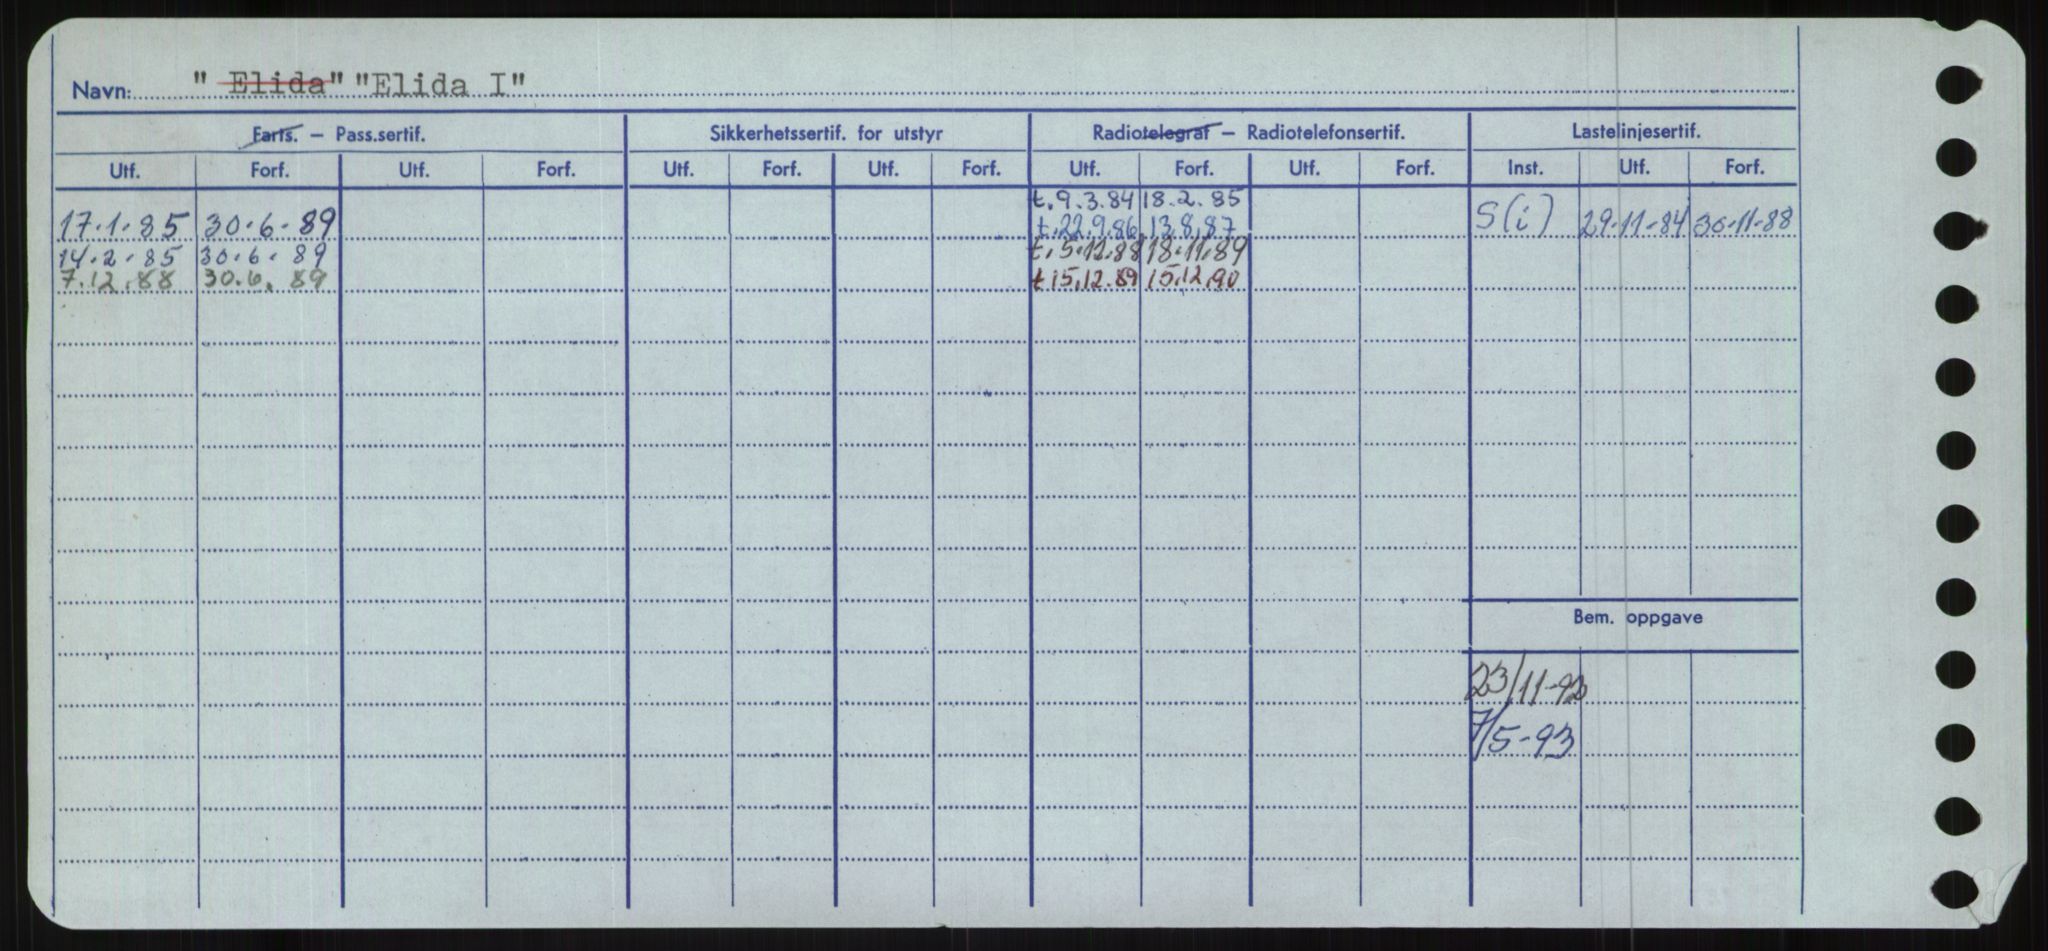 Navn: " Elida" "Elida I"
Farts. — Pass.sertif. Sikkerhetssertif. for utstyr Radiotelegraf — Radiotelefonsertif. Lastelinjesertif.
Utf. Forf. Utf. Forf. Utf. Forf. Utf. Forf. Utf. Forf. Utf. Forf. Inst. Utf. Forf.
t. 9.3.84 18.2.85
17.1.85 30.6.89 t.22.9.86 13.8.87 S(i) 29.11.84 30.11.88
14.2.85 30.6.89 t.5.12.88 18.11.89
7.12.88 30.6.89 t 15.12.89 15.12.90
Bem. oppgave
23/11-92
7/5-93